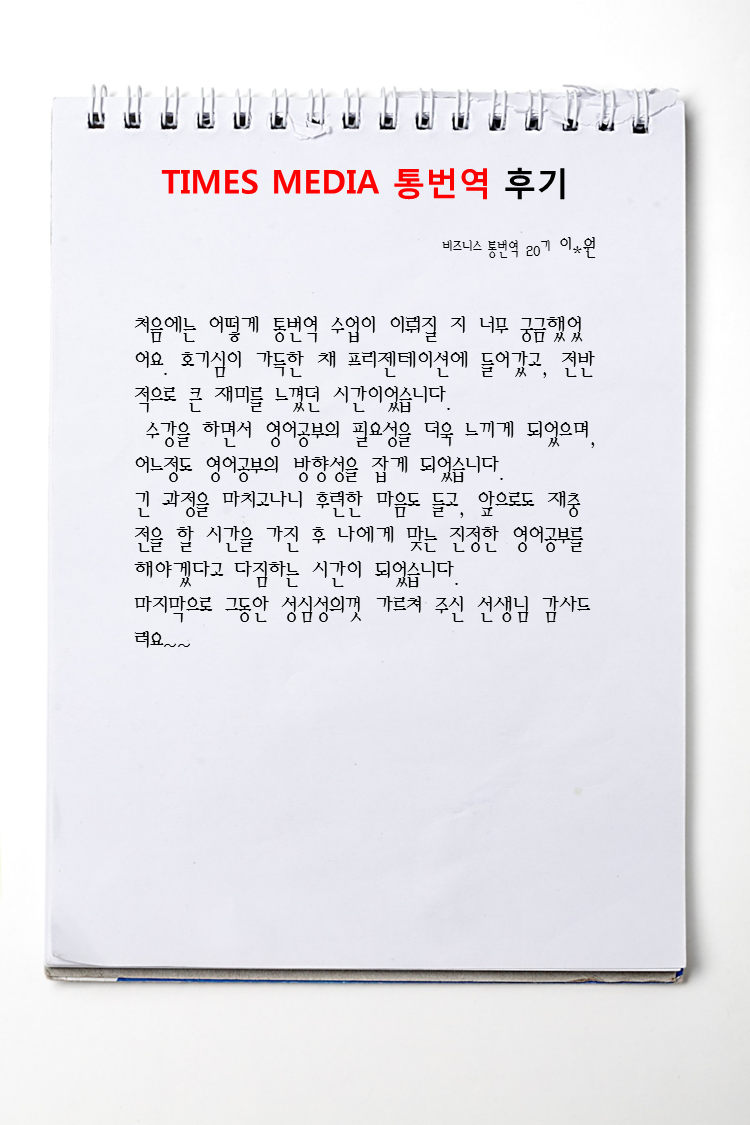 TIMES MEDIA 통번역 후기
비즈니스 통번역 20기 이*원
처음에는 어떻게 통번역 수업이 이뤄질 지 너무 궁금했었
어요. 호기심이 가득한 채 프리젠테이션에 들어갔고, 전반
적으로 큰 재미를 느꼈던 시간이었습니다.
수강을 하면서 영어공부의 필요성을 더욱 느끼게 되었으며,
어느정도 영어공부의 방향성을 잡게 되었습니다.
긴 과정을 마치고나니 후련한 마음도 들고, 앞으로도 재충
전을 할 시간을 가진 후 나에게 맞는 진정한 영어공부를
해야겠다고 다짐하는 시간이 되었습니다.
마지막으로 그동안 성심성의껏 가르쳐 주신 선생님 감사드
려요~~